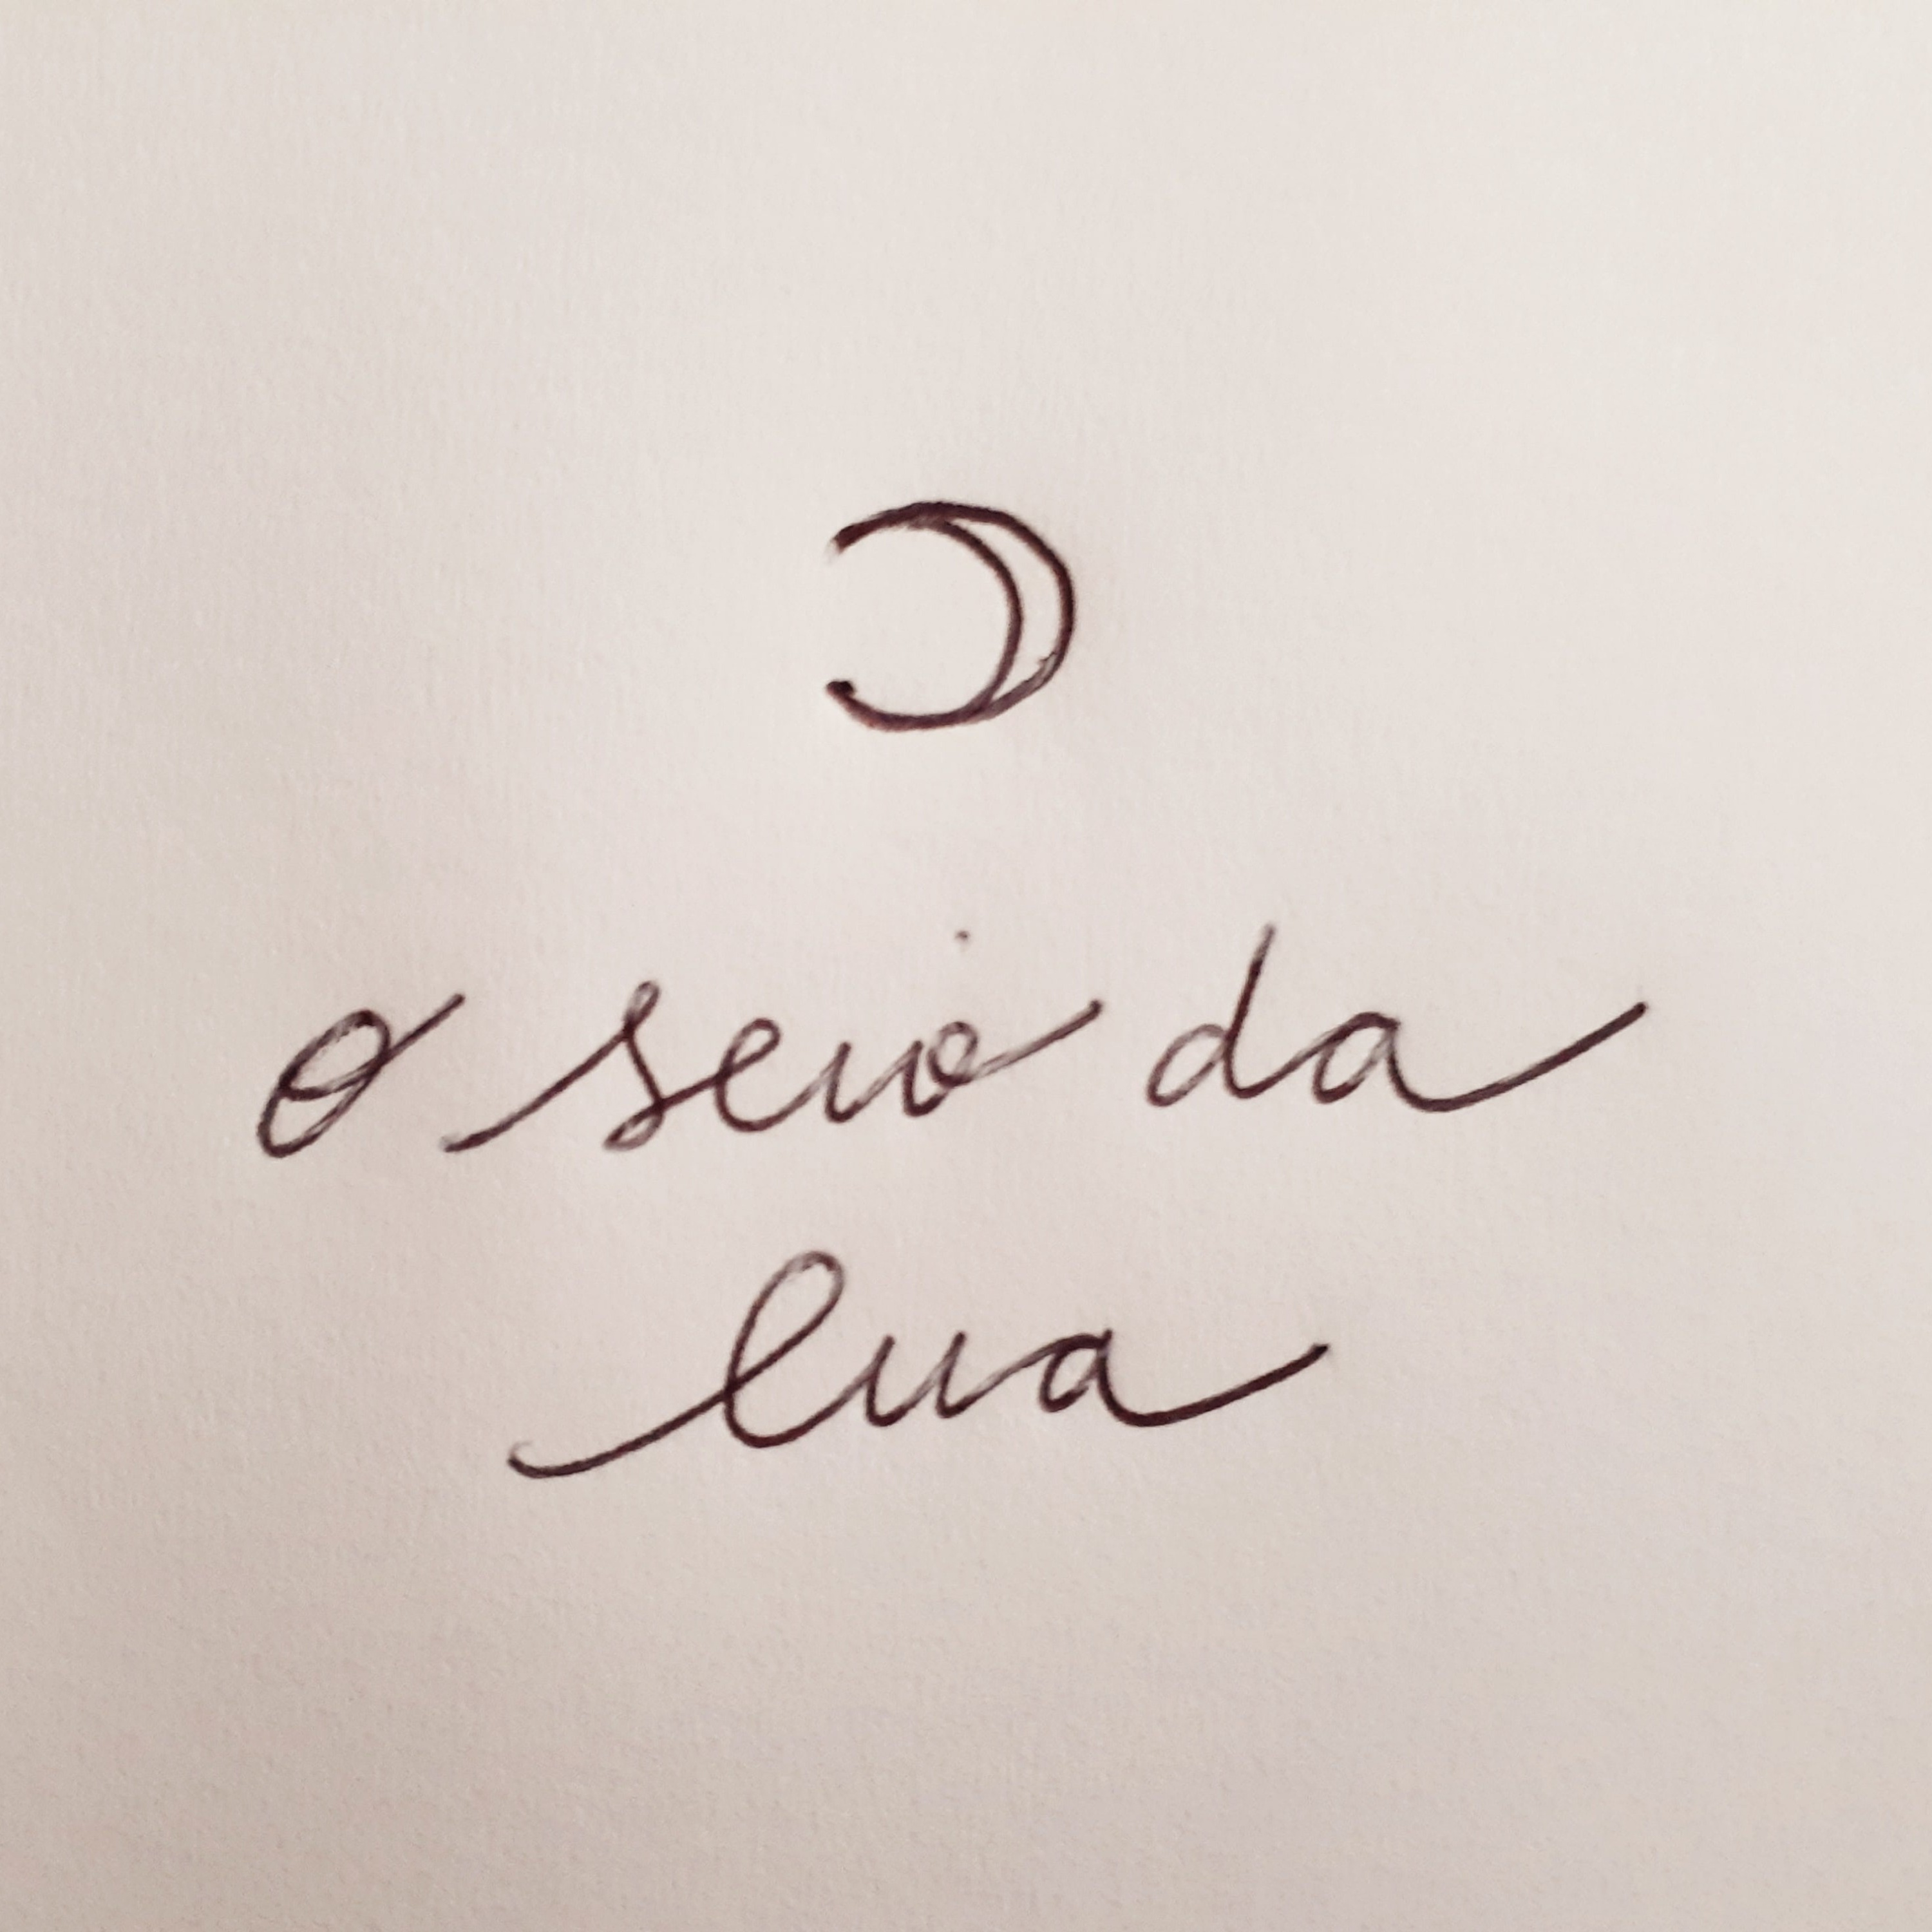 o seio da
lua